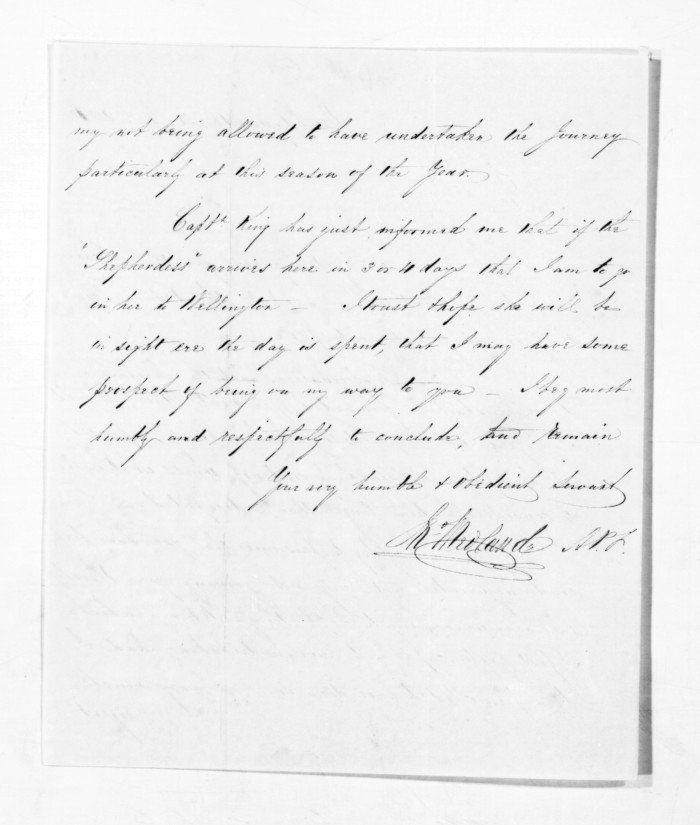 my not being allowed to have undertaken the Journey
particularly at this season of the Year.
Capt. King has just informed me that if the
"Shepherdess" arrives here in 3 or 4 days that I am to go
in her to Wellington – I trust & hope she will be
in sight ere the day is spent, that I may have some
prospect of being on my way to you – I beg most
humbly and respectfully to conclude, and remain
Your very humble & obedient Servant